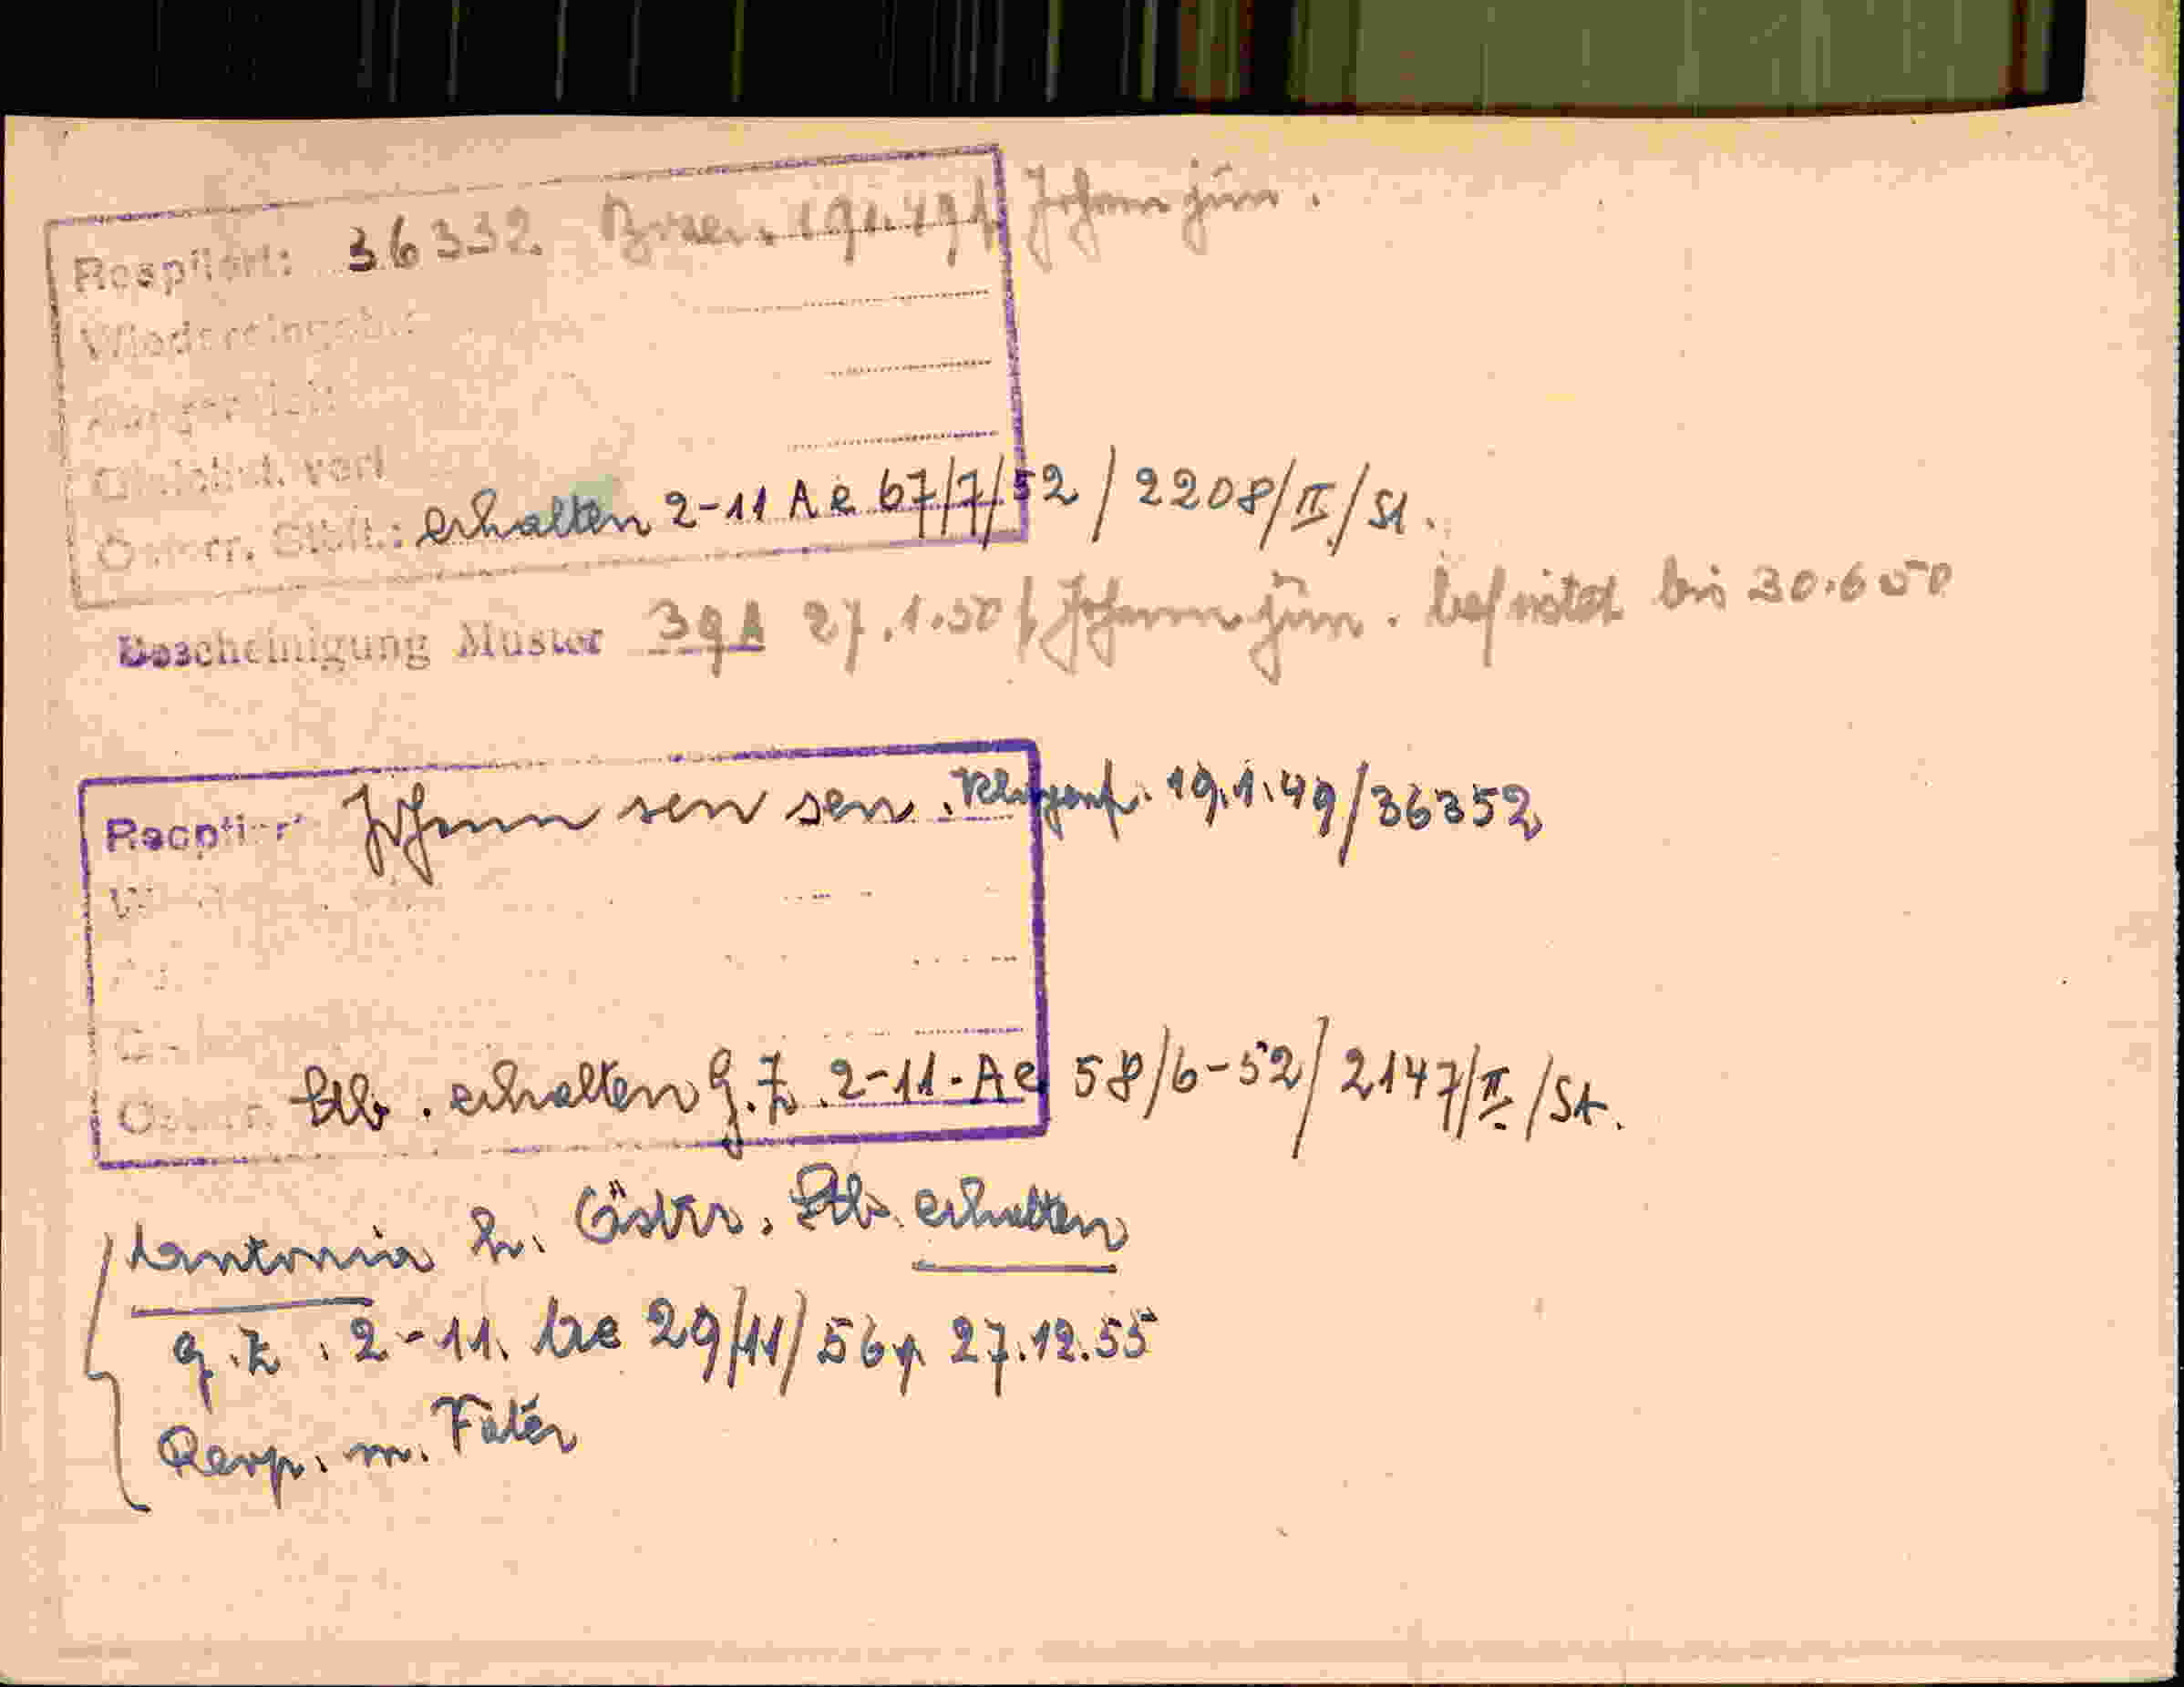 Reoptiert: 36332 Bozen. 19.1.49 f. Johann jun.
Wiedereingebü.:
Ausgereist:
Gleichst. verl.
Österr. Stbft.: erhalten 2-11 Ae 67/7/52 / 2208/II./St.
Bescheinigung Muster 39A 27.1.50 f. Johann jun. befristet bis 30.6.50
Reoptiert Johann sen sen. Klagenf. 19.1.49/36352
Stb. erhalten G.Z. 2-11-Ae 58/6-52/2147/II/St.
Antonia h. Östrr. Stb. erhalten
G.Z. 2-11. Ae 29/11/56 v. 27.12.55
Reop. m. Vater